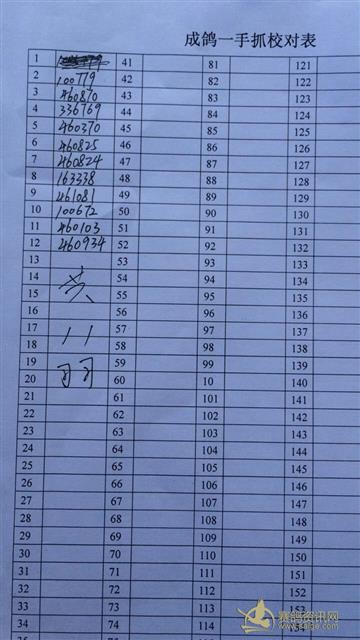 成鸽一手抓校对表
1 41 81 121
2 100779 42 82 122
3 460870 43 83 123
4 336769 44 84 124
5 460370 45 85 125
6 460825 46 86 126
7 460824 47 87 127
8 163338 48 88 128
9 461081 49 89 129
10 100672 50 90 130
11 460103 51 91 131
12 460934 52 92 132
13 53 93 133
14 54 94 134
15 55 95 135
16 56 96 136
17 57 97 137
18 58 98 138
19 59 99 139
20 60 10 140
21 61 101 141
22 62 102 142
23 63 103 143
24 64 104 144
25 65 105 145
26 66 106 146
27 67 107 147
28 68 108 148
29 69 109 149
30 70 110 150
31 71 111 151
32 72 112 152
33 73 113 153
34 74 114 154
赛鸽资讯网